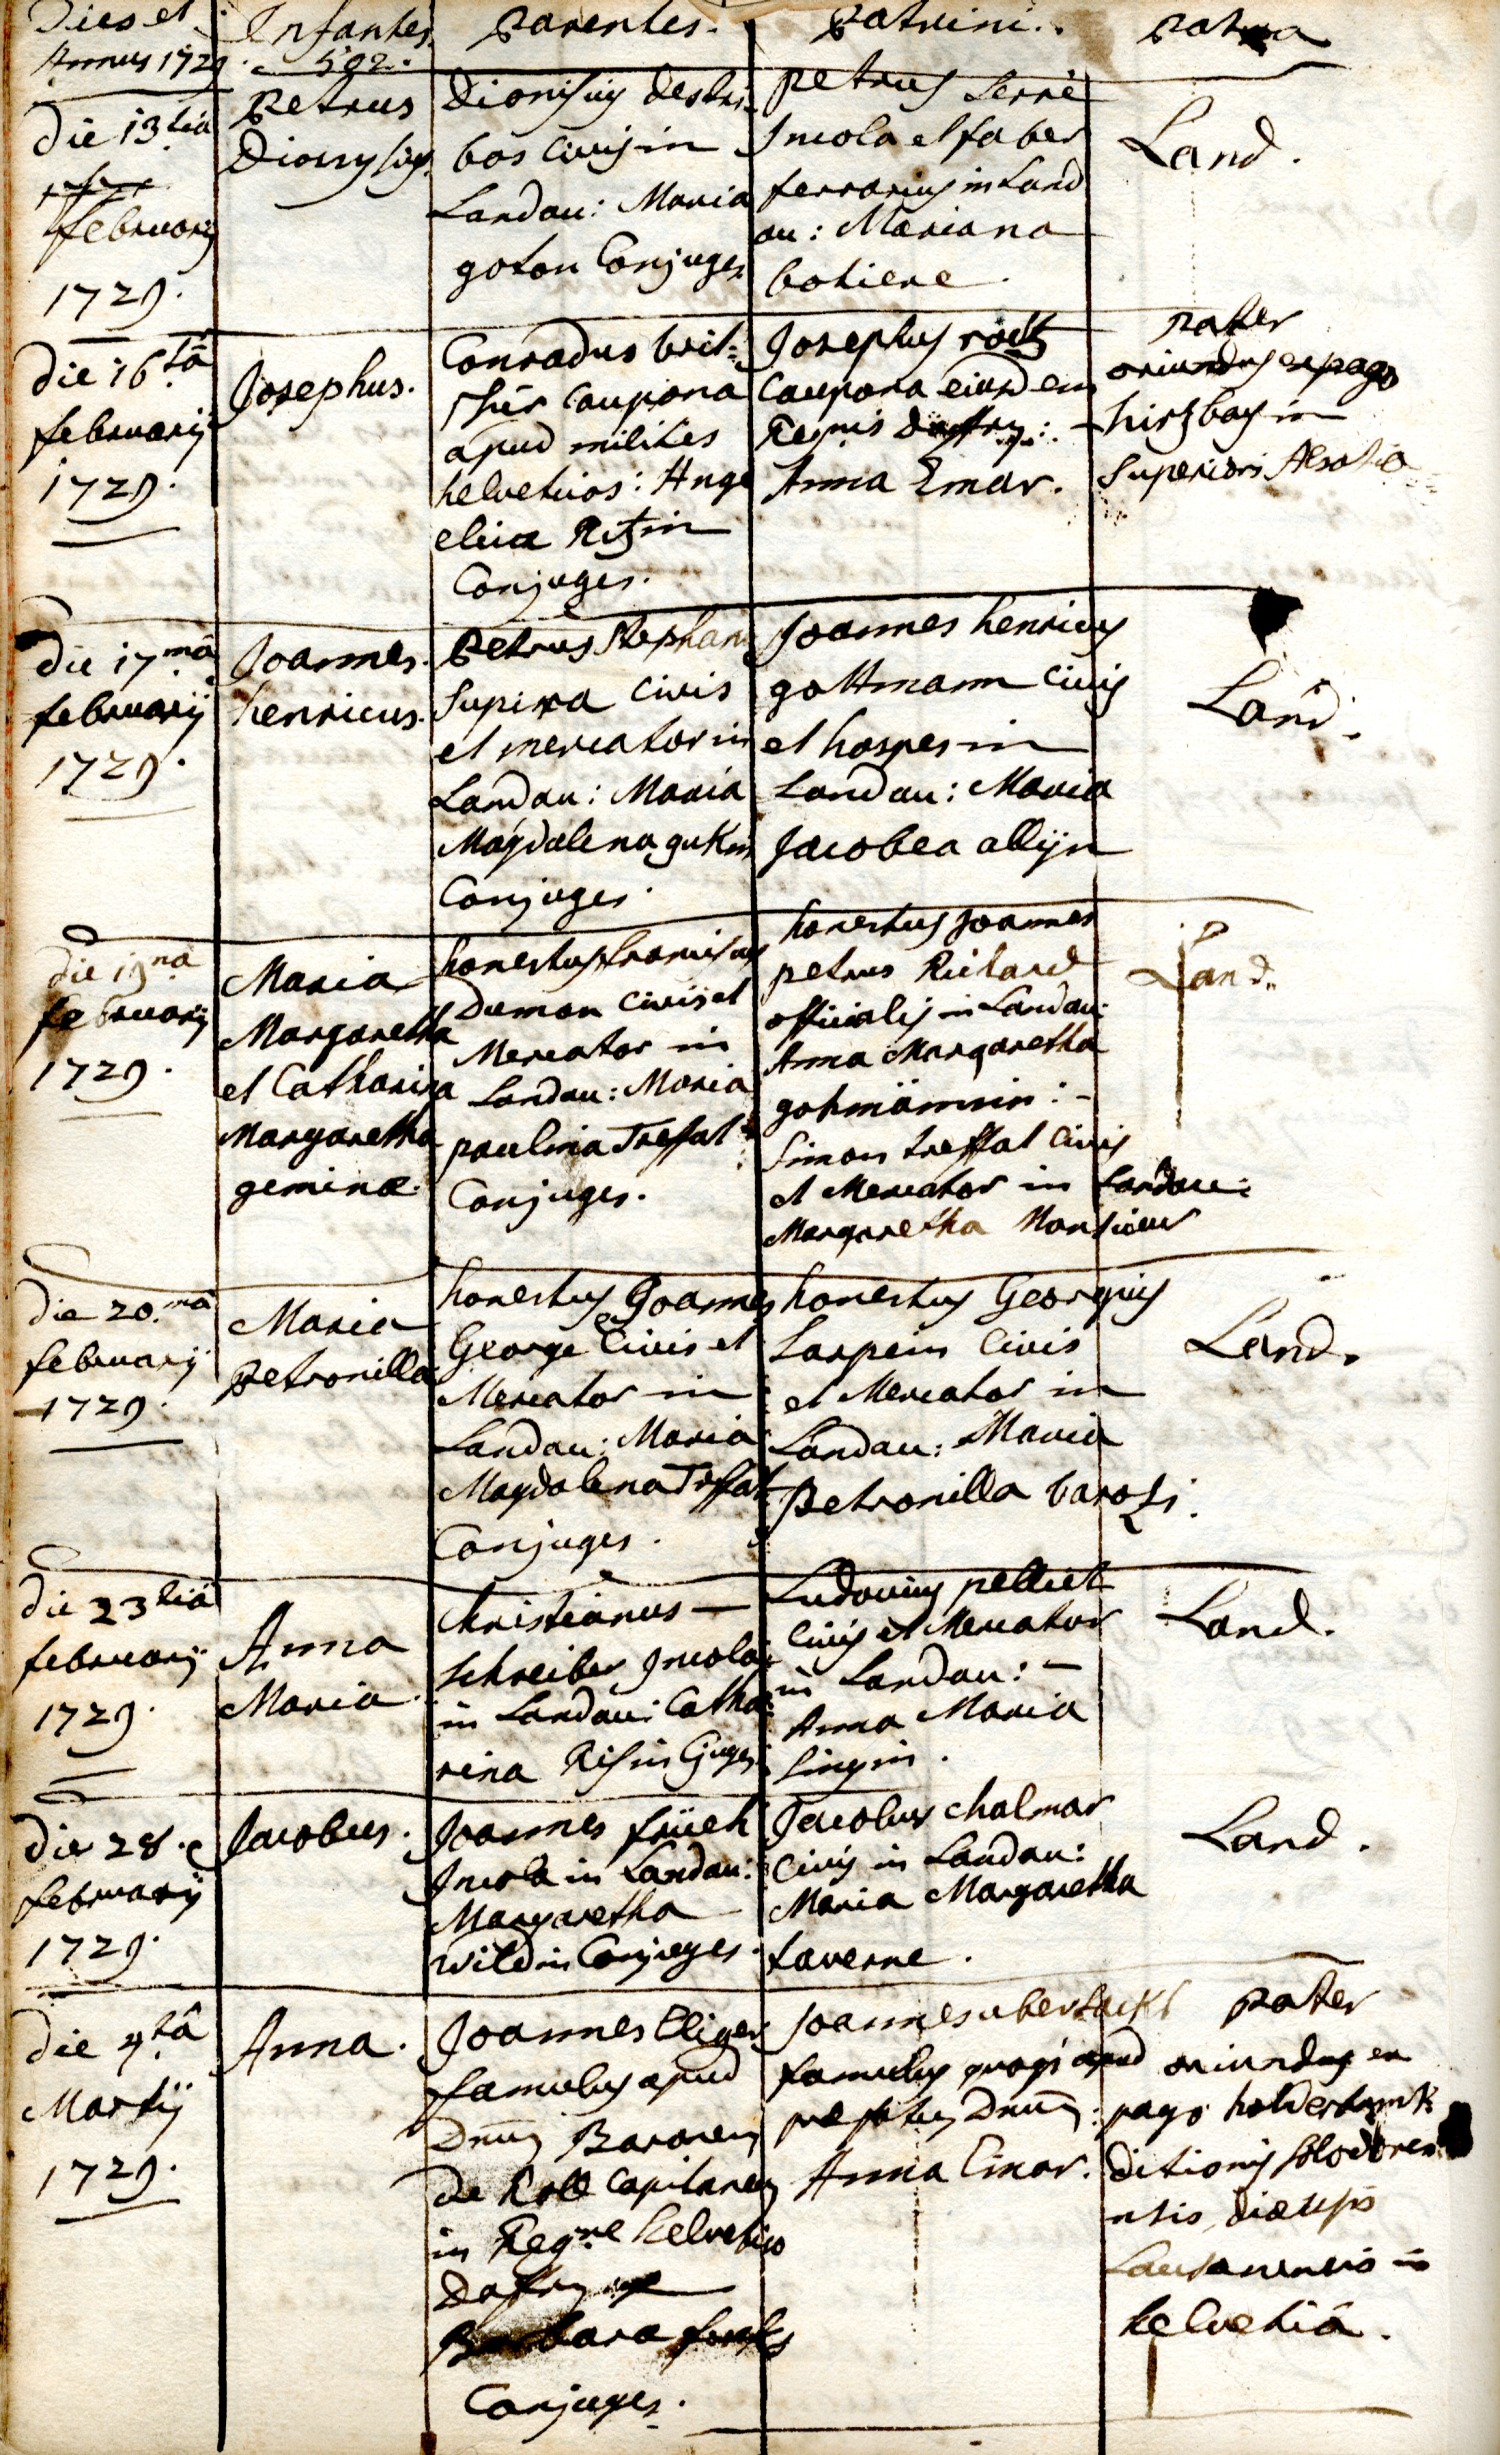 Dies et
Annus 1729.
Infantes.
592.
Parentes.
Patrini.
Patria
die 13.tia
february
1729.
Petrus
Dionysius
Dionisius destri-
bos civis in
Landau: Maria
goton Conjuges
Petrus Serre
Incola et faber
ferrarius in Land
au: Mariana
botiere.
Land.
die 16.tâ
februarij
1729.
Josephus.
Conradus brit-
caupona
apud milites
helvetios: Ang
elica Ritzin
Conjuges.
Josephus
Caupona eiusdem
Regnis daffry:
Anna Emar.
Pater
oriundus ex pago
hirzbag in
Superiori Alsatia
die 17.mâ
februarij
1729.
Joannes.
henricus.
Petrus Stephan
Supira civis
et mercator in
Landau: Maria
Magdalena
Conjuges.
Joannes henricus
gottmann civis
et hospes in
Landau: Maria
Jacobea allijn
Land.
die 19.na
februarij
1729.
Maria
Margaretha
et Catharina
Margaretha
geminæ.
honestus franciscus
Dumon civis et
Mercator in
Landau: Maria
paulina Treffat
Conjuges.
honestus Joannes
petrus Richard
officialis in Landau:
Anna Margaretha
gotmännin: -
Simon treffat civis
et Mercator in Landau:
Margaretha Monsieur
Land.
die 20.mâ
februarij
1729.
Maria
Petronilla
honestus Joannes
George Civis et
Mercator in
Landau: Maria
Magdalena Treffat
Conjuges.
honestus Georgius
Larpein Civis
et Mercator in
Landau: Maria
Petronilla barozi.
Land.
die 23tiâ
februarij
1729.
Anna
Maria.
Christianus —
Schreiber Incola
in Landau: Catha
rina Risin Cjuges
Ludovius pelliet
Civis et Mercator
in Landau: —
Anna Maria
Singin.
Land.
die 28.
februarij
1729.
Jacobus.
Joannes früeh
Incola in Landau:
Margaretha
wildin Conjuges.
Jacobus chalmar
Civis in Landau:
Maria Margaretha
taverne.
Land.
die 4.tâ
Martij
1729.
Anna.
Joannes Eliger
famulus apud
Dnum Baronem
de Roll Capitaneum
in Reg.ne helvetico
Dafry
Barbara
Conjuges.
Joannes
famulus apud
Dnum:
Anna Emar.
Pater
oriundus ex
pago
ditionis Solodoren
ntis diæcesis
Lausanensis in
helvetiâ.